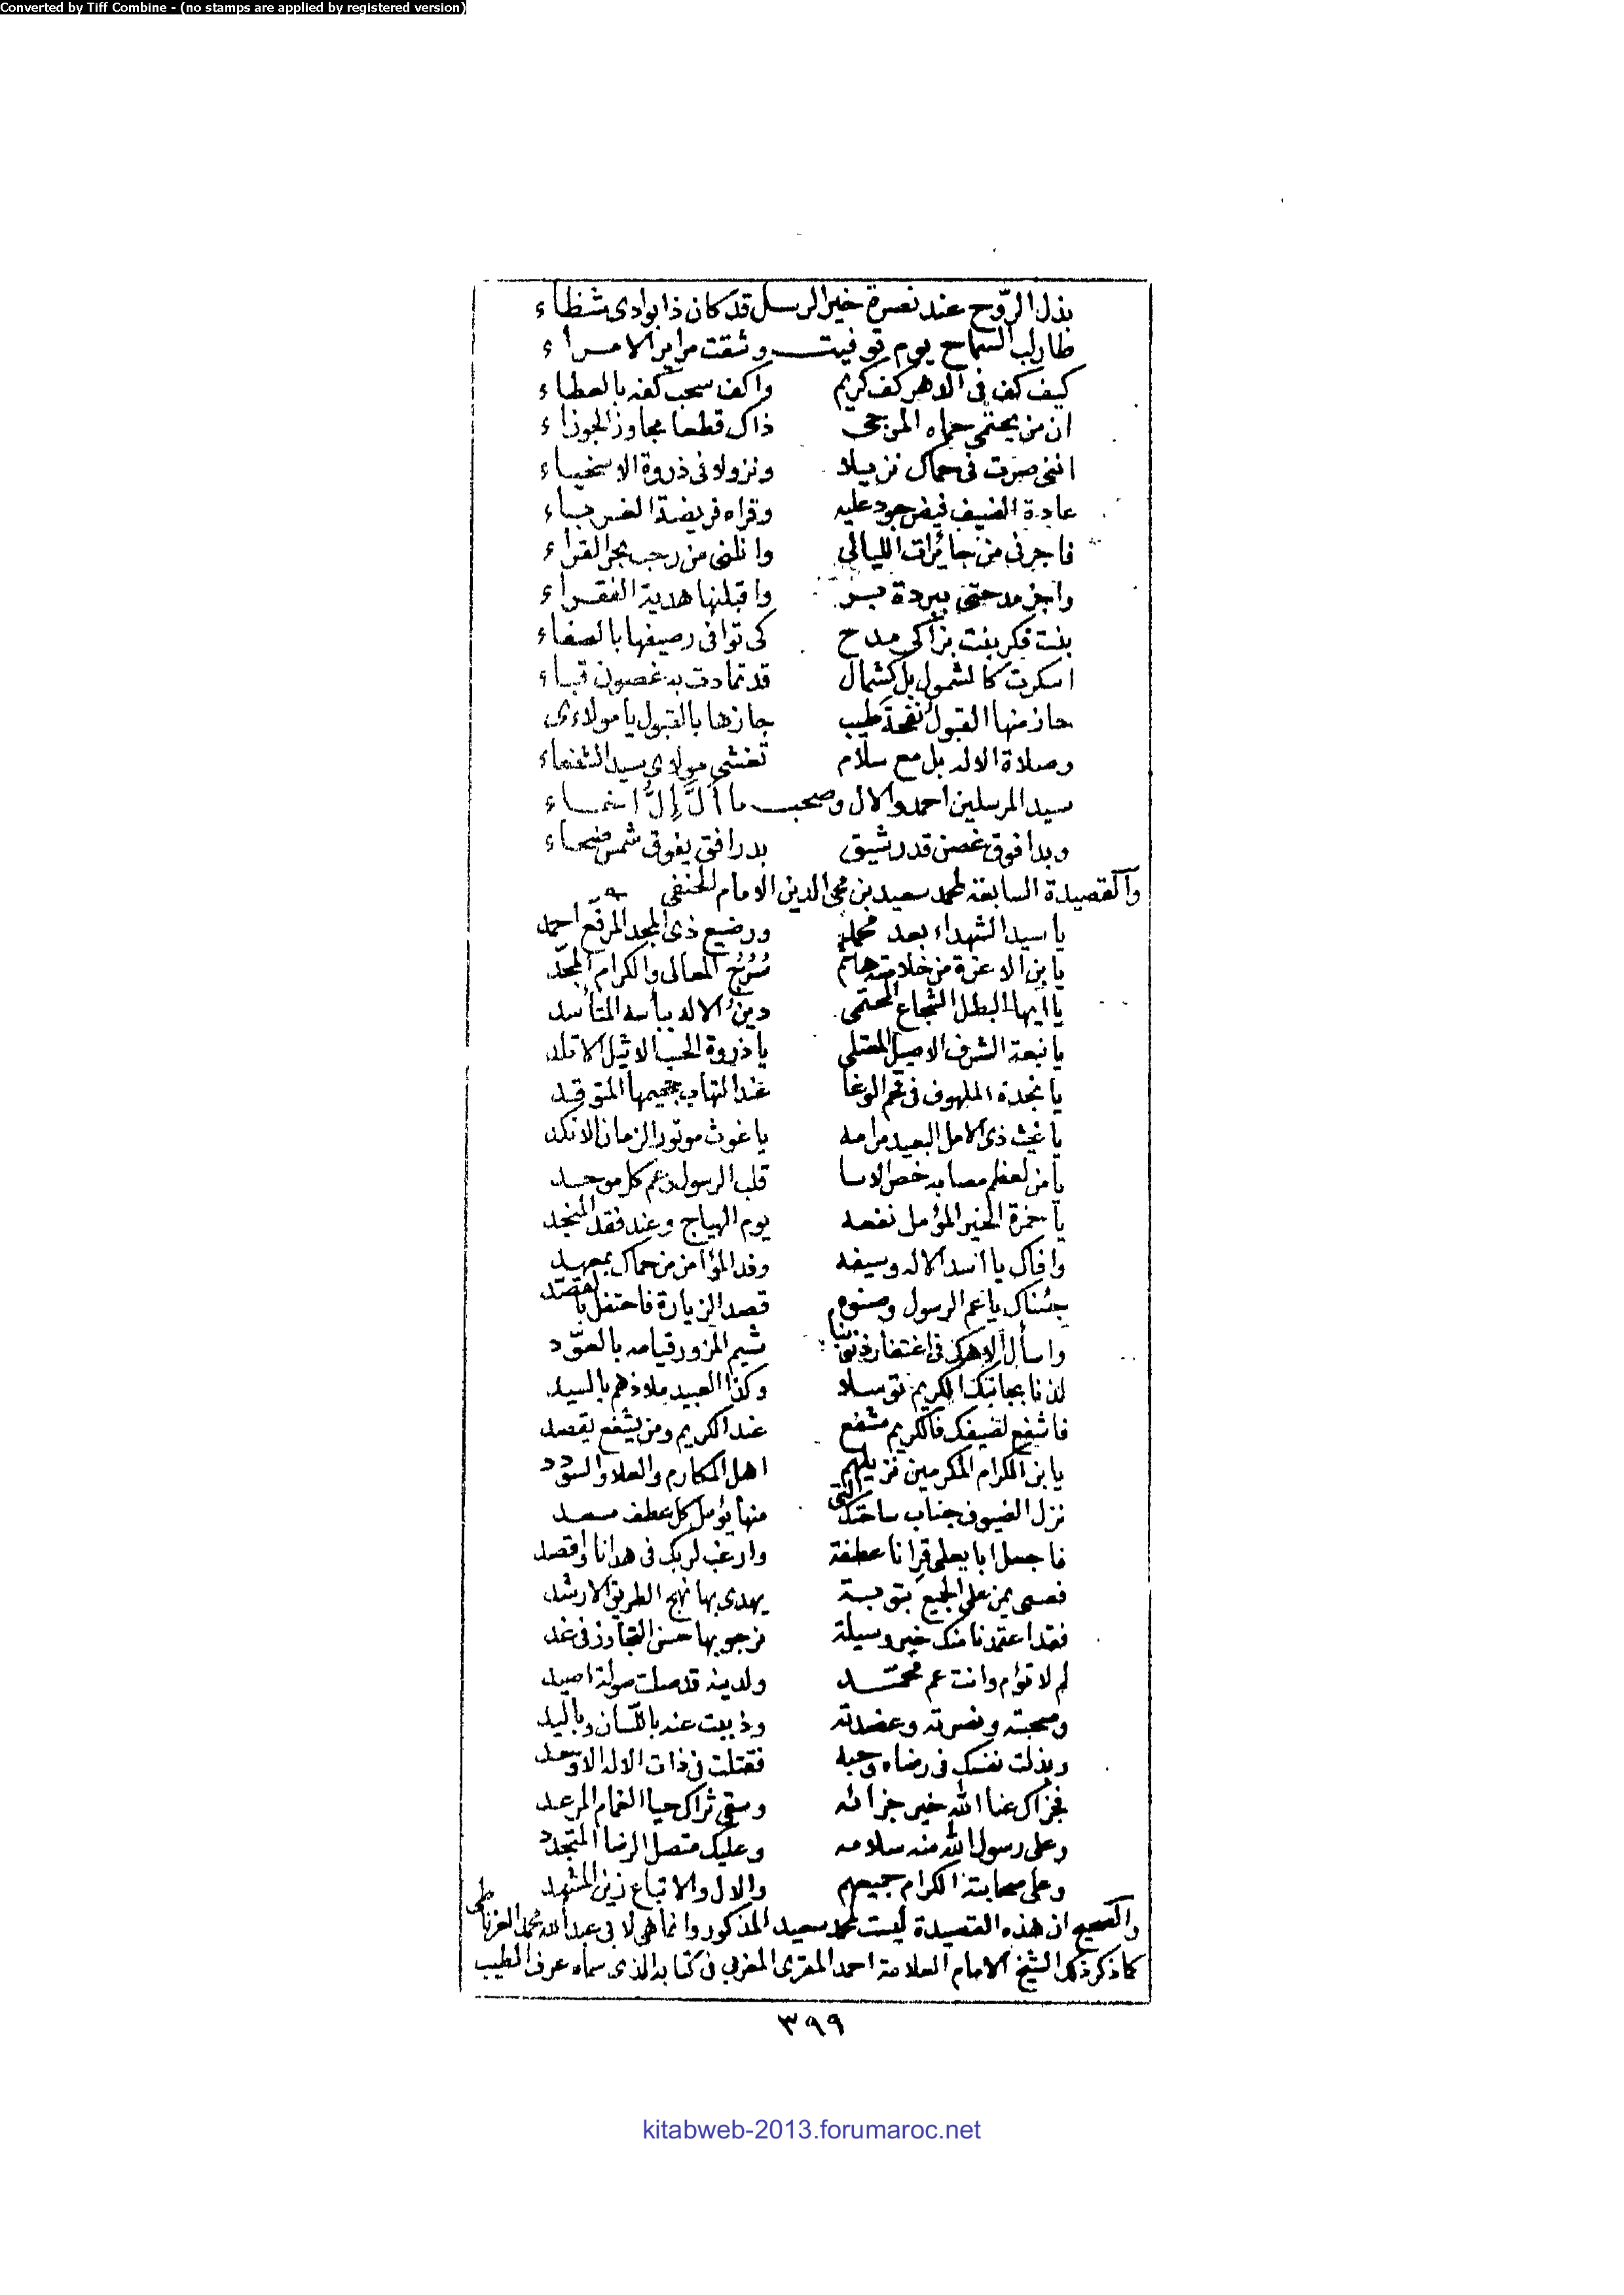 Converted by Tiff Combine - (no stamps are applied by registered version)
بذل الرّوح عند نصرة خير الرسل قد كان ذا بوادى شظاء
طار لب السماح يوم توفيت وشقت مراير الامراء
كيف كف فى الدهر كف كريم واكف سحب كفه بالعطاء
ان من يحتمى حماه المرجى ذاك قطعا مجاوز الجوزاء
اننى صرت فى حماك نزيلا ونزولا فى ذروة الاسخياء
عادة الضيف فيض جود عليه وقراه فريضة الغرباء
فاجرنى من جائرات الليالى وانلنى من رحب بحر القراء
واجز مدحتى ببردة بر واقبلنها هدية الفقراء
بنت فكر بنت بزاكى مدح كى توافى رصيفها بالصفاء
اسكرت كالشمول بل كشمال قد تمادت به غصون قباء
حاز منها القبول نفحة طيب جازها بالقبول يا مولاءى
وصلاة الاله بل مع سلام تغشى مولاى سيد الشفعاء
سيد المرسلين احمد والال وصحب ما أَلَّ إِلُّ انتماء
وبدا فوق غصن قد رشيق بدر افق يفوق شمس ضحاء
والقصيدة السابعة لمحمد سعيد بن محى الدين الامام الحنفى
يا سيد الشهداء بعد محمد ورضيع ذى المجد المرفّع احمد
يا بن الاعزة من خلاصة هاشم سُرُجُ المعالى والكرام المجّد
يا ايها البطل الشجاع المحتمى دينُ الاله ببأسه المتأسد
يا نبعة الشرف الاصيل المعتلى يا ذروة الحسب الاثيل الاتلد
يا نجدة الملهوف فى قحم الوغا عند التهاب جحيمها المتوقد
يا غيث ذى الامل البعيد مرامه يا غوث موتور الزمان الانكد
يا من لعظم مصابه خص الاسا قلب الرسول وعم كل موحد
يا حمزة الخير المؤمل نفعه يوم الهياج وعند فقد المنجد
وافاك يا اسد الاله وسيفه وفد المؤامن من حماك بمعهد
جئناك يا عم الرسول وصنوه قصد الزيارة فاحتفل بالقصّد
واسأل الاهك فى اغتفار ذنوبنا شيم المزور قيامه بالعوّد
لذنا بجانبك الكريم توسلا وكذا العبيد ملاذهم بالسيد
فاشفع لضيفك فالكريم مشفع عند الكريم ومن يشفع يقصد
يا بن الكرام المكرمين نزيلهم اهل المكارم والعلا والسودد
نزل الضيوف جناب ساحتك التى منها يؤمل كل عطف مسعد
فاجعل ابا يعلى قِرانا عطفة وارغب لربك فى هدانا واقصد
فعسى يمن على الجميع بتوبة يهدى بها نهج الطريق الارشد
فقد اعتمدنا منك خير وسيلة نرجو بها حسن التجاوز فى غد
لم لا تؤام وانت عم محمّد ولدينه قد صلت صولة اصيد
وصحبته ونصرته وعضدته وذببت عنه باللّسان وباليد
وبذلت نفسك فى رضاه وحبه فقتلت فى ذات الاله الاوحد
فجزاك عنا الله خير جزائه وسقى ثراك حيا الغمام المرعد
وعلى رسول الله منه سلامه وعليك متصل الرضا المتجدد
وعلى صحابته الكرام جميعهم والال والاتباع زين المشهد
والصحيح ان هذه القصيدة ليست لمحمد سعيد المذكور وانما هى لابى عبد الله محمد الغرناطى
كما ذكر ذلك الشيخ الامام العلامة احمد المقرى المغربى فى كتابه الذى سماه عرف الطيب
٣٩٩
kitabweb-2013.forumaroc.net